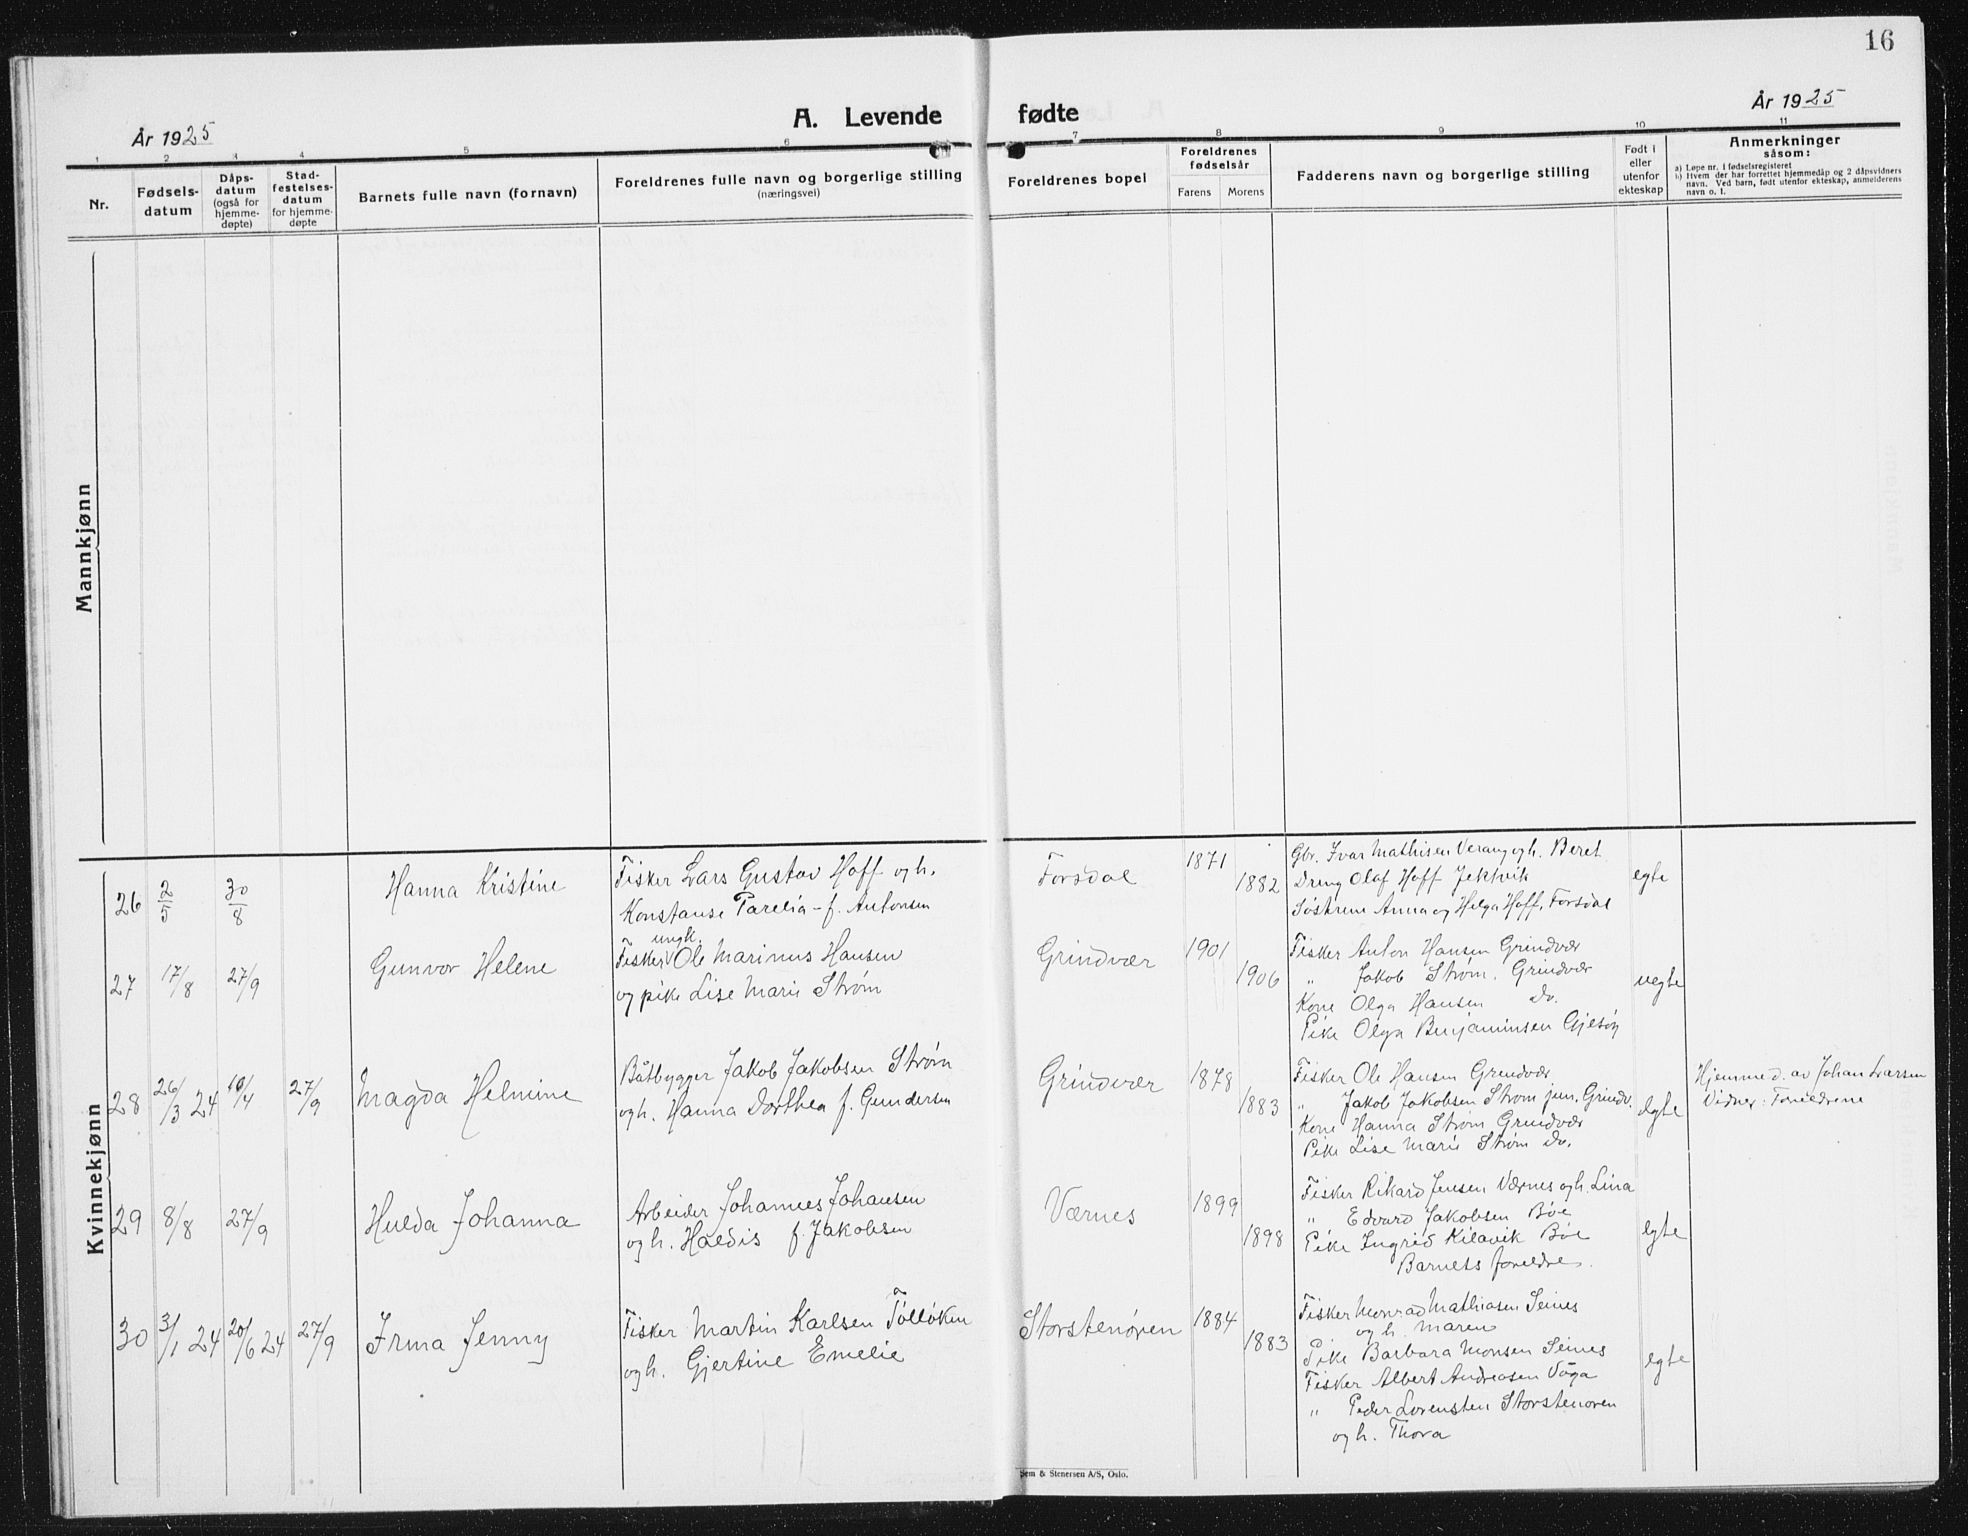 16
År 1925
A. Levende fødte
År 1925
1 2 3 4 5 6 7 8 9 10 11
Nr.
Fødsels-
datum
Dåps-
datum
(også for
hjemme-
døpte)
Stad-
festelses-
datum
for hjemme-
døpte
Barnets fulle navn (fornavn)
Foreldrenes fulle navn og borgerlige stilling
(næringsvei)
Foreldrenes bopel
Foreldrenes
fødselsår
Farens Morens
Fadderens navn og borgerlige stilling
Født i
eller
utenfor
ekteskap
Anmerkninger
såsom:
a) Løpe nr. i fødselsregisteret
b) Hvem der har forrettet hjemmedåp og 2 dåpsvidners
navn. Ved barn, født utenfor ekteskap, anmelderens
navn o. l.
Mannkjønn
Kvinnekjønn
26 2/5 30/8
Hanna Kristine
Fisker Lars Gustav Hoff og h.
Konstanse Parelia - f. Antonsen
Forsdal
1871
1882
Gbr. Ivar Mathisen Verang og h. Beret
Dreng Olaf Hoff Jektvik
Søstrene Anna og Helga Hoff, Forsdal
egte
27 17/8 27/9
Gunvor Helene
ungk.
Fisker Ole Marinus Hansen
og pike Lise Marie Strøm
Grindvær
1901
1906
Fisker Anton Hansen Grindvær
" Jakob Strøm. Grindvær
Kone Olga Hansen Do.
Pike Olga Benjaminsen Gjesøy
uegte
28 26/3 24 10/4 27/9
Magda Helmine
Båtbygger Jakob Jakobsen Strøm
og h. Hanna Dorthea f. Gundersen
Grindvær
1878
1883
Fisker Ole Hansen Grindvær
" Jakob Jakobsen Strøm jun. Grindv.
Kone Hanna Strøm Grindvær
Pike Lise Marie Strøm Do.
egte
Hjemmed. av Johan Larsen
Vidner: Foreldrene
29 8/8 27/9
Hulda Johanna
Arbeider Johannes Johansen
og h. Haldis f. Jakobsen
Værnes
1899
1898
Fisker Rikard Jensen Værnes og h. Lina
" Edvard Jakobsen Bøe
Pike Ingrid Kilavik Bøe
Barnets foreldre.
egte
30 3/1 24 20/6 24 27/9
Irma Jenny
Fisker Martin Karlsen Tølløken
og h. Gjertine Emelie
Storstenøren
1884
1883
Fisker Monrad Mathiasen Seines
og h. Maren
Pike Barbara Monsen Seines
Fisker Albert Andreasen Våga
" Peder Lorensten Storstenoren
og h. Thora
egte
Sem & Stenersen A/S, Oslo.